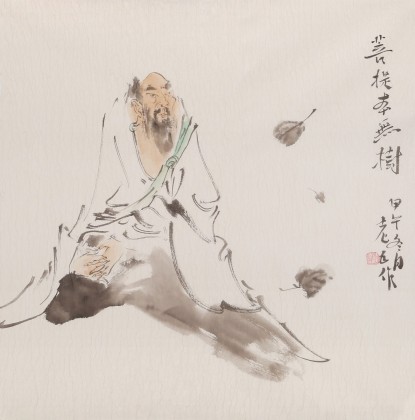 菩提本無樹
甲午冬月
老五作